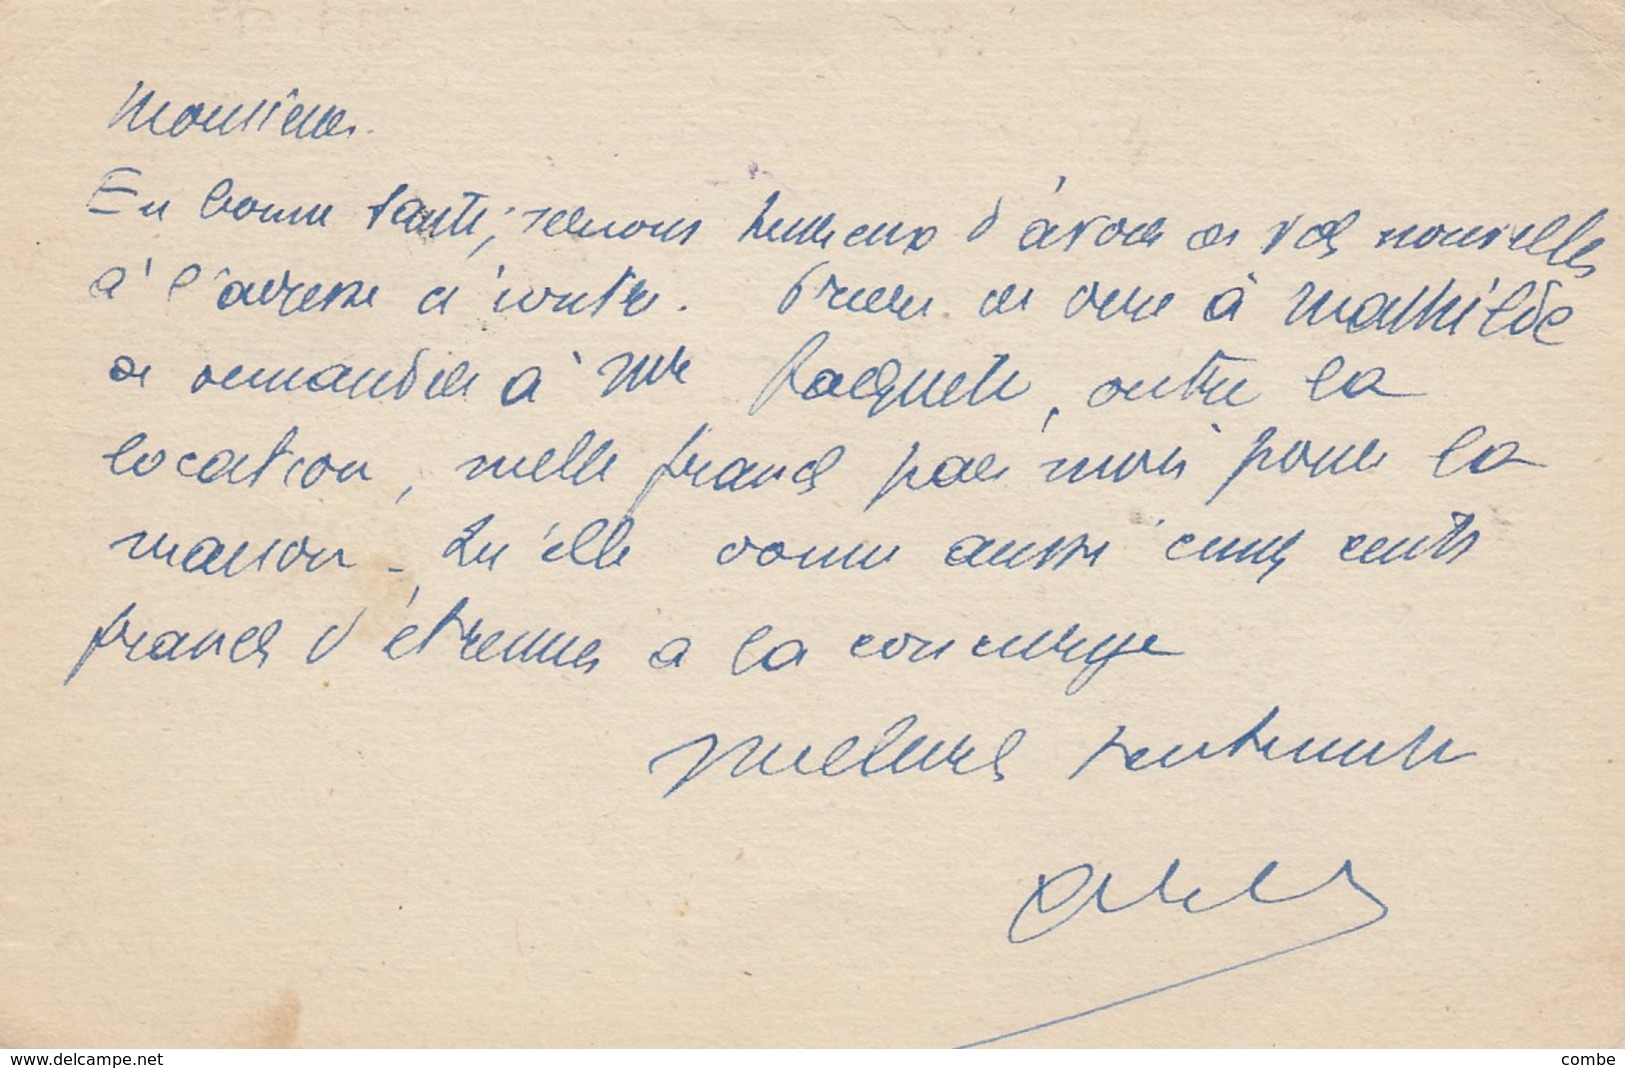 Monsieur.
En bonne santé, serions heureux d'avoir de vos nouvelles
à l'adresse ci contre. Prière de dire à Mathilde
de demander à Mr Jacquet, outre la
location, mille francs par mois pour la
maison - Qu'elle donne aussi cinq cents
francs d'étrennes a la concierge
meilleurs sentiments
www.delcampe.net
combe